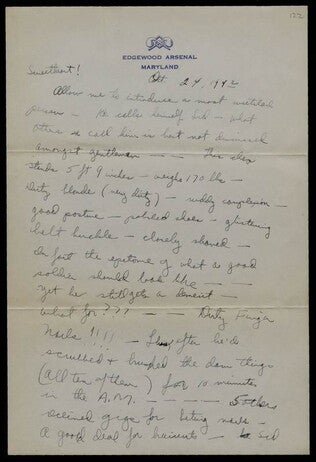 122
EDGEWOOD ARSENAL
MARYLAND
Oct 24, 1942
Sweetheart!
Allow me to introduce a most wretched
person — He calls himself Sid — what
others call him is best not discussed
amongst gentlemen — — This
stands 5 ft 9 inches — weighs 170 lbs —
Dirty blonde (very dirty) — ruddy complexion —
good posture — polished shoes — glistening
belt buckle — closely shaved —
In fact the epitome of what a good
soldier should look like — —
yet he still gets a demerit —
what for??? — — Dirty Finger
Nails !!!! — after he'd
scrubbed & the darn things
(All ten of them) for 10 minutes
in the A.M. — — — — 5 others
received gigs for biting nails —
A good deal for haircuts — Sid